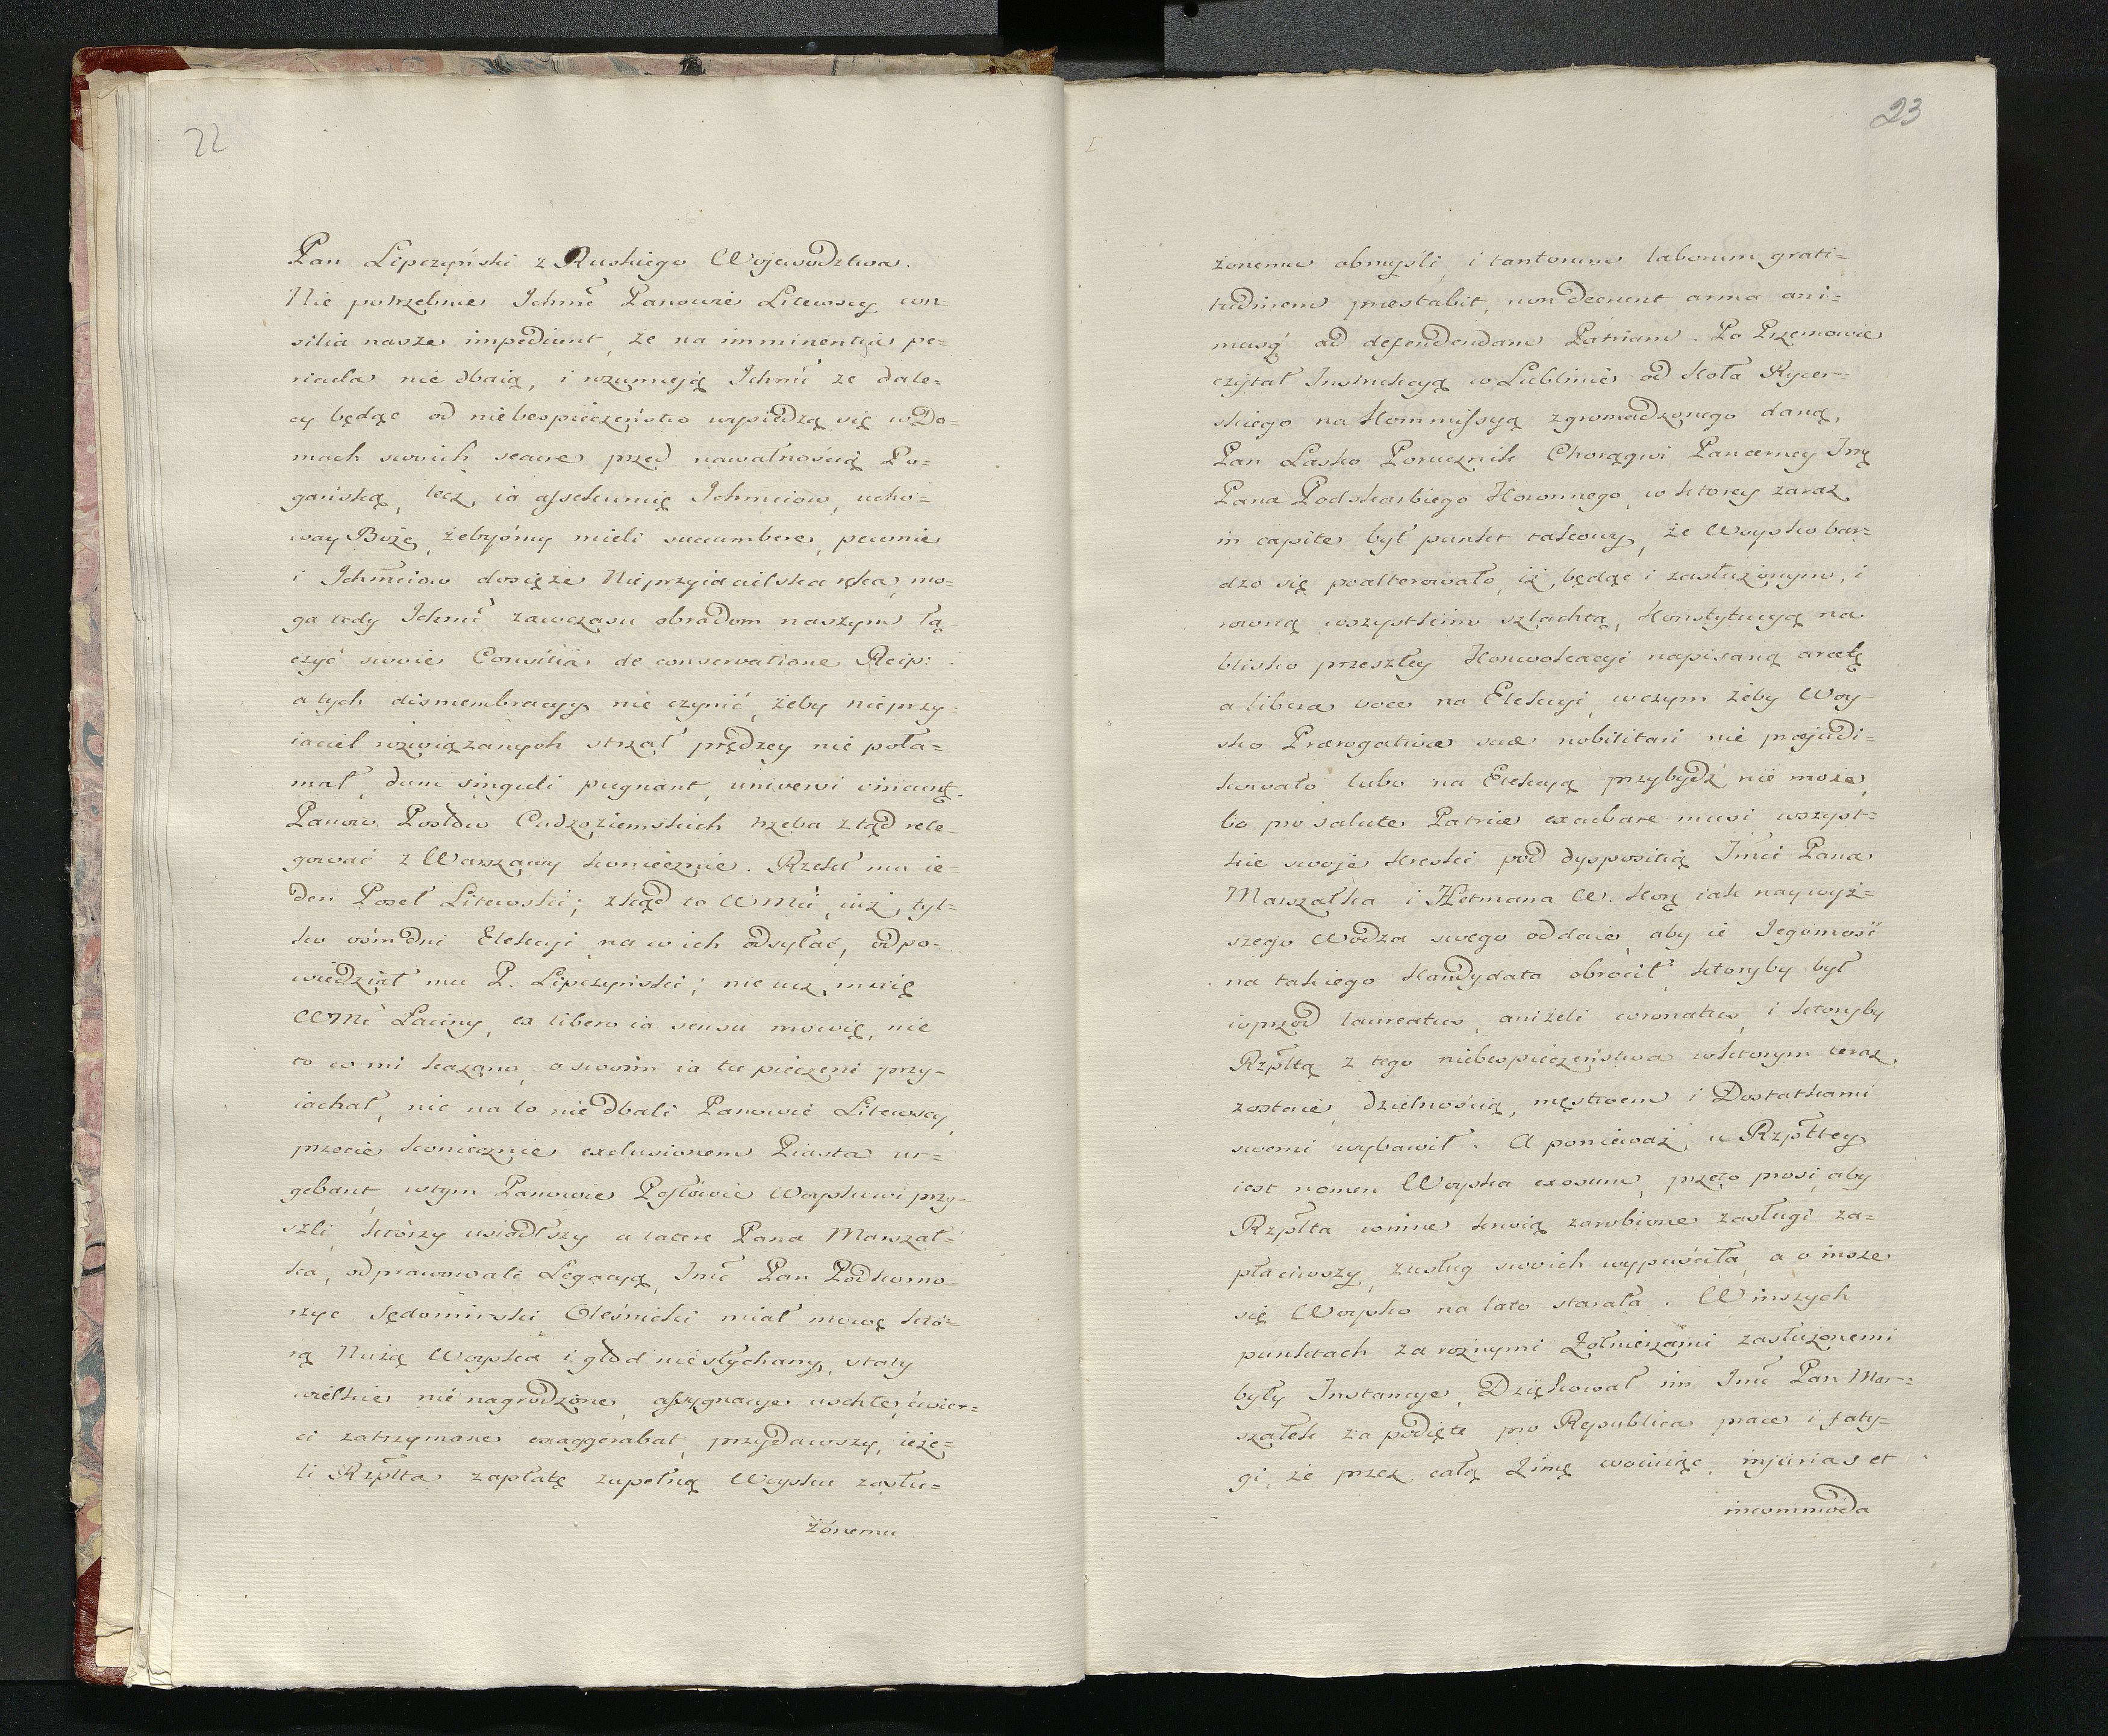 22
Pan Lipczyński z Ruskiego Wojewodztwa.
Nie potrzebnie Ichmć Panowie Litewscy con=
silia nasze impediunt, że na imminentia pe=
ricula nie dbaią, i rozumieją Ichmć że dale=
cy będąc od niebespieczeństw wysiedzą się w Do=
mach swoich secure przed nawałnością Po=
gańską, lecz ia assekuruię Ichmciow, ucho=
way Boże, żebyśmy mieli succumbere, pewnie
i Ichmciow dosięże Nieprzyiacielska ręka, mo=
ga tedy Ichmć zawczasu obradom naszym łą
czyć swoie Consilia de conservatione Reip:
a tych dismembracyy nie czynić, żeby nieprzy=
iaciel rozwiązanych strzał prędzey nie poła=
mał, dum singuli pugnant, universi vincunt.
Panow Posłów Cudzoziemskich trzeba ztąd rele=
gować z Warszawy koniecznie. Rzekł mu ie=
den Poseł Litewski; zkąd to WMć, iuż, tyl=
ko ośm dni Elekcyi, na co ich odsyłać, odpo=
wiedział mu P. Lipczyński; nie ucz mnię
WMć Łaciny, ex libero ia sensu mowię, nie
to co mi kazano, o swoim ia tu pieczeni przy=
iachał, nic na to nie dbali Panowie Litewscy,
przecie koniecznie exclusionem Piasta ur=
gebant, wtym Panowie Posłowie Woyskowi przy=
szli, którzy usiadłszy a latere Pana Marszał=
ka, odprawowali Legacyą, Imć Pan Podkomo
rzyc Sędomirski Oleśnicki miał mowę któ=
rą Nużą Woyska i głód nie słychany, straty
wielkie nie nagrodzone, assygnacye uschłe, ćwier=
ci zatrzymane exaggerabat, przydawszy, ieże=
li Rzplta zapłatę zupełną Woysku zasłu=
żónemu
23
żonemu obmyśli, i tantorum laborum grati=
tudinem præstabit, non deerunt arma ani=
musq́ ad defendendam Patriam. Po Przemowie
czytał Instrukcyą w Lublinie od Koła Rycer=
skiego na Kommissyą zgromadzonego daną,
Pan Lasko Porucznik Chorągwi Pancerney Imć
Pana Podskarbiego Koronnego, w ktorey zaraz
in capite był punkt takowy, że Woysko bar=
dzo się poalterowało, iż, będąc i zasłużonym, i
rowną wszystkim szlachtą, Konstytucyą na
blisko przeszłey Konwokacyi napisaną arcetę
a libera voce na Elekcyi, wczym żeby Woy=
sko Prærogativæ suæ nobilitari nie præjudi=
kowało, lubo na Elekcyą przybydź nie może,
bo pro salute Patriæ excubare musi wszyst=
kie swoje kreski pod dyspozitią Imci Pana
Marszałka i Hetmana W. Korę iak naywyż=
szego Wodza swego oddaie, aby ie Iegomość
na takiego Kandydata obrocił, ktoryby był
wprzod laureatus, aniżeli coronatus, i ktoryby
Rzpltą z tego niebespieczeństwa wktorym teraz
zostaie, dzielnością, męstwem i Dostatkami
swemi wybawił. A ponieważ u Rzpltey
iest nomen Woyska exosum, przeto prosi, aby
Rzplta onine krwią zarobione zasługi za=
płaciwszy, zusług swoich wypuściła, a o insze
się Woysko na lato starała. W inszych
punktach za roznymi Żołnierzami zasłużonemi
były Instancye, Dziękował im Imć Pan Mar=
szałek za podięte pro Republica prace i faty=
gi, że przez całą Zimę woiuiąc, injurias et
incommoda